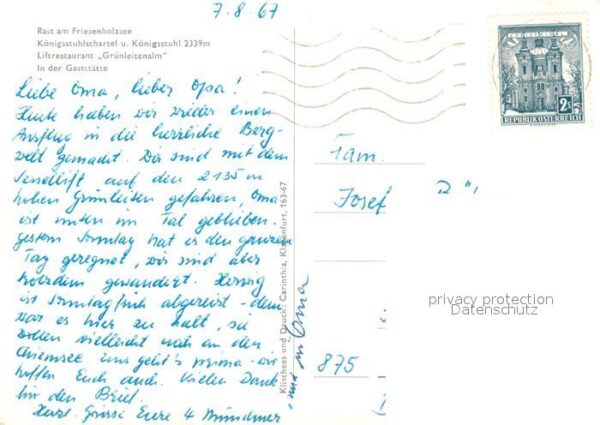 7.8.67
Rast am Friesenholzsee
Königsstuhlschartel u. Königsstuhl 2339m
Liftrestaurant „Grünleitenalm"
In der Gaststätte
Liebe Oma, lieber Opa!
Heute haben wir wieder einen
Ausflug in die herrliche Berg-
welt gemacht. Wir sind mit dem
Sessellift auf den 2135m
hohen Grünleiten gefahren, Oma
ist unten im Tal geblieben.
Gestern Sonntag hat es den ganzen
Tag geregnet, wir sind aber
trotzdem gewandert. Herwig
ist Sonntag früh abgereist - dem
war es hier zu kalt, sie
wollen vielleicht noch an den
Chiemsee. Uns geht's prima - wir
hoffen Euch auch. Vielen Dank
für den Brief.
Herzl. Grüsse Eure 4 Münchner
und in Oma
Klischees und Druck: Carinthia, Klagenfurt, 163-67
CHRISTKINDL
2S
REPUBLIK ÖSTERREICH
Fam.
Josef
875
privacy protection
Datenschutz